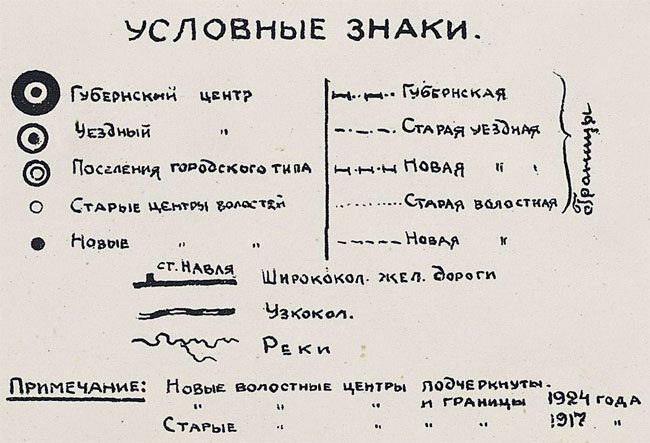 УСЛОВНЫЕ ЗНАКИ.
ГУБЕРНСКИЙ ЦЕНТР
УЕЗДНЫЙ "
ПОСЕЛЕНИЯ ГОРОДСКОГО ТИПА
СТАРЫЕ ЦЕНТРЫ ВОЛОСТЕЙ
НОВЫЕ " "
ГУБЕРНСКАЯ
СТАРАЯ УЕЗДНАЯ
НОВАЯ " "
СТАРАЯ ВОЛОСТНАЯ
НОВАЯ "
Границы
СТ. НАВЛЯ
ШИРОКОКОЛ. ЖЕЛ. ДОРОГИ
УЗКОКОЛ.
РЕКИ
ПРИМЕЧАНИЕ: НОВЫЕ ВОЛОСТНЫЕ ЦЕНТРЫ ПОДЧЕРКНУТЫ.
" " " И ГРАНИЦЫ 1924 ГОДА
СТАРЫЕ " " " " 1917 "